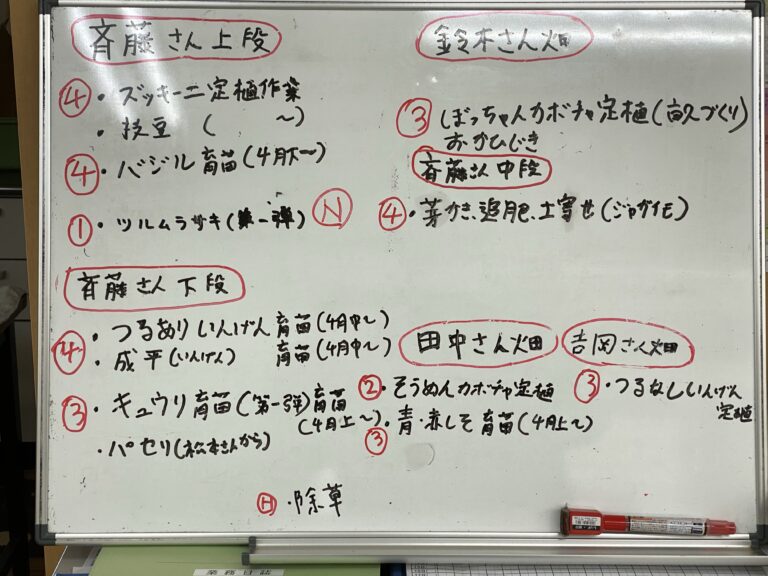 斉藤さん上段
④・ズッキーニ定植作業
・枝豆 ( 〜)
④・バジル育苗(4月下〜)
①・ツルムラサキ(第一弾) Ⓝ
斉藤さん下段
④・つるありいんげん 育苗(4月中〜)
・成平(いんげん) 育苗(4月中〜)
③・キュウリ育苗(第一弾)育苗
(4月上〜)
・パセリ(松本さんから)
Ⓗ・除草
鈴木さん畑
③ ぼっちゃんカボチャ定植(畝づくり)
おかひじき
斉藤さん中段
④・芽かき、追肥、土寄せ(ジャガイモ)
田中さん畑
②・そうめんカボチャ定植
③・青・赤しそ育苗(4月上〜)
吉岡さん畑
③・つるなしいんげん
定植
業務日誌